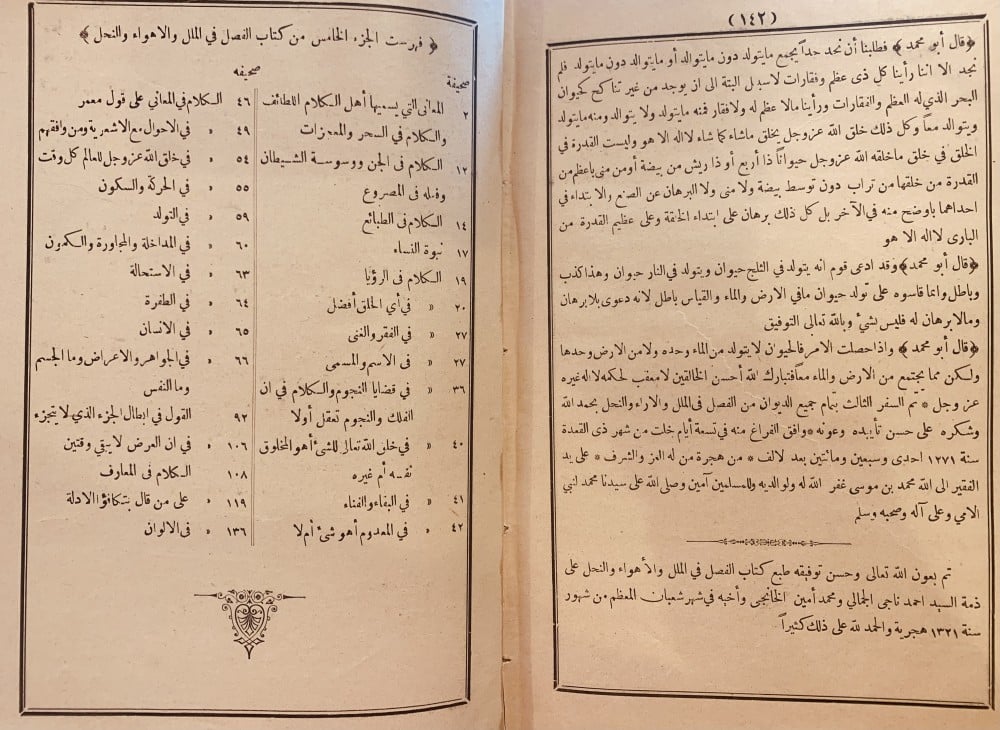 (١٤٢)
﴿قال أبو محمد﴾ فطلبنا أن نجد حداً يجمع مايتولد دون مايتوالد أو مايتوالد دون مايتولد فلم
نجد الا اننا رأينا كل ذى عظم وفقارات لاسبيل البتة الى ان يوجد من غير تناكح كحيوان
البحر الذي له العظم والفقارات ورأينا مالا عظم له ولافقار فمنه مايتولد ولا يتوالد ومنه مايتولد
ويتوالد معاً وكل ذلك خلق الله عز وجل يخلق ماشاء كما شاء لااله الا هو وليست القدرة في
الخلق في خلق ماخلقه الله عز وجل حيواناً ذا أربع أو ذا ريش من بيضة أو من منى باعظم من
القدرة من خلقها من تراب دون توسط بيضة ولا منى ولا البرهان عن الصنع والابتداء في
احداهما باوضح منه في الآخر بل كل ذلك برهان على ابتداء الخلقة وعلى عظيم القدرة من
البارى لااله الا هو
﴿قال أبو محمد﴾ وقد ادعى قوم انه يتولد في الثلج حيوان ويتولد في النار حيوان وهذا كذب
وباطل وانما قاسوه على تولد حيوان مافي الارض والماء والقياس باطل لانه دعوى بلابرهان
ومالابرهان له فليس بشئ وبالله تعالى التوفيق
﴿قال أبو محمد﴾ واذا حصلت الامر فالحيوان لايتولد من الماء وحده ولامن الارض وحدها
ولكن مما يجتمع من الارض والماء معاً فتبارك الله أحسن الخالقين لامعقب لحكمه لااله غيره
عز وجل * تم السفر الثالث بتمام جميع الديوان من الفصل فى الملل والاراء والنحل بحمد الله
وشكره على حسن تأييده وعونه * وافق الفراغ منه في تسعة أيام خلت من شهر ذى القعدة
سنة ١٢٧١ احدى وسبعين ومائتين بعد الالف * من هجرة من له العز والشرف * على يد
الفقير الى الله محمد بن موسى غفر الله له ولوالديه وللمسلمين آمين وصلى الله على سيدنا محمد النبي
الامي وعلى آله وصحبه وسلم
تم بعون الله تعالى وحسن توفيقه طبع كتاب الفصل في الملل والأهواء والنحل على
ذمة السيد احمد ناجى الجمالي ومحمد أمين الخانجى وأخيه في شهر شعبان المعظم من شهور
سنة ١٣٢١ هجرية والحمد لله على ذلك كثيراً
﴿ فهرست الجزء الخامس من كتاب الفصل في الملل والاهواء والنحل ﴾
صحيفة
٢ المعاني التي يسميها أهل الكلام اللطائف
والكلام في السحر والمعجزات
١٢ الكلام فى الجن ووسوسة الشيطان
وفعله فى المصروع
١٤ الكلام فى الطبائع
١٧ نبوة النساء
١٩ الكلام فى الرؤيا
٢٠ « في أي الخلق أفضل
٢٧ « في الفقر والغنى
٢٧ « فى الاسم والمسمى
٣٦ « في قضايا النجوم والكلام في ان
الفلك والنجوم تعقل أولا
٤٠ « في خلق الله تعالى للشئ أهو المخلوق
نفسه أم غيره
٤١ « في البقاء والفناء
٤٢ « في المعدوم أهو شئ أم لا
صحيفه
٤٦ الكلام في المعاني على قول معمر
٤٩ « في الاحوال مع الاشعرية ومن وافقهم
٥٤ « في خلق الله عز وجل للعالم كل وقت
٥٥ « في الحركة والسكون
٥٩ « في التولد
٦٠ « في المداخلة والمجاورة والكمون
٦٣ « في الاستحالة
٦٤ « في الطفرة
٦٥ « في الانسان
٦٦ « في الجواهر والاعراض وما الجسم
وما النفس
٩٢ القول في ابطال الجزء الذي لا يتجزء
١٠٦ « في ان العرض لايبقي وقتين
١٠٨ الكلام فى المعارف
١١٩ « على من قال بتكافؤ الادلة
١٣٦ « فى الالوان